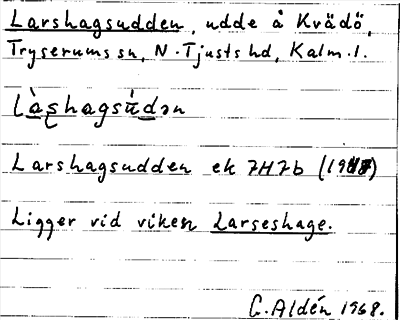 Larshagsudden, udde å Kvädö,
Tryserums sn, N. Tjusts hd, Kalm. l.
Larshagsudden ek 7H7b
Ligger vid viken Larseshage.
C. Aldén 1968.